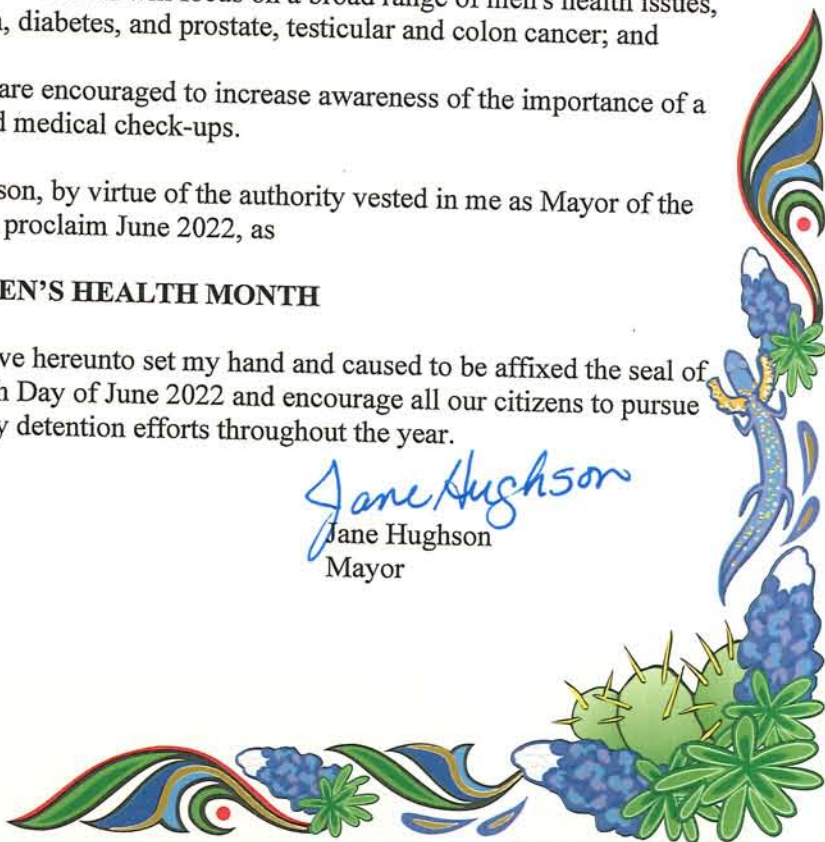 will focus on a broad range of men's health issues,
, diabetes, and prostate, testicular and colon cancer; and
are encouraged to increase awareness of the importance of a
d medical check-ups.
son, by virtue of the authority vested in me as Mayor of the
proclaim June 2022, as
EN'S HEALTH MONTH
ve hereunto set my hand and caused to be affixed the seal of
h Day of June 2022 and encourage all our citizens to pursue
y detention efforts throughout the year.
Jane Hughson
Jane Hughson
Mayor